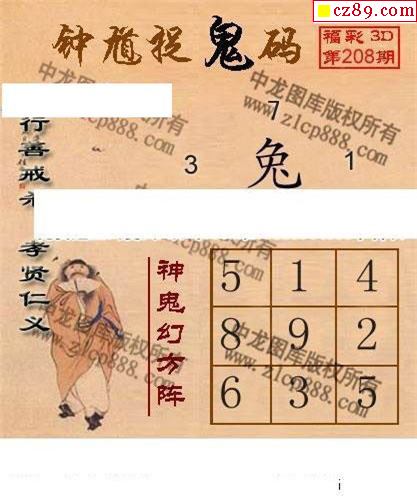 cz89.com
钟馗捉鬼码
福彩 3D
第208期
中龙图库版权所有
www.zlcp888.com
7
3
兔
1
行善戒
孝贤仁义
神鬼幻方阵
5 1 4
8 9 2
6 3 5
中龙图库版权所有
www.zlcp888.com
i